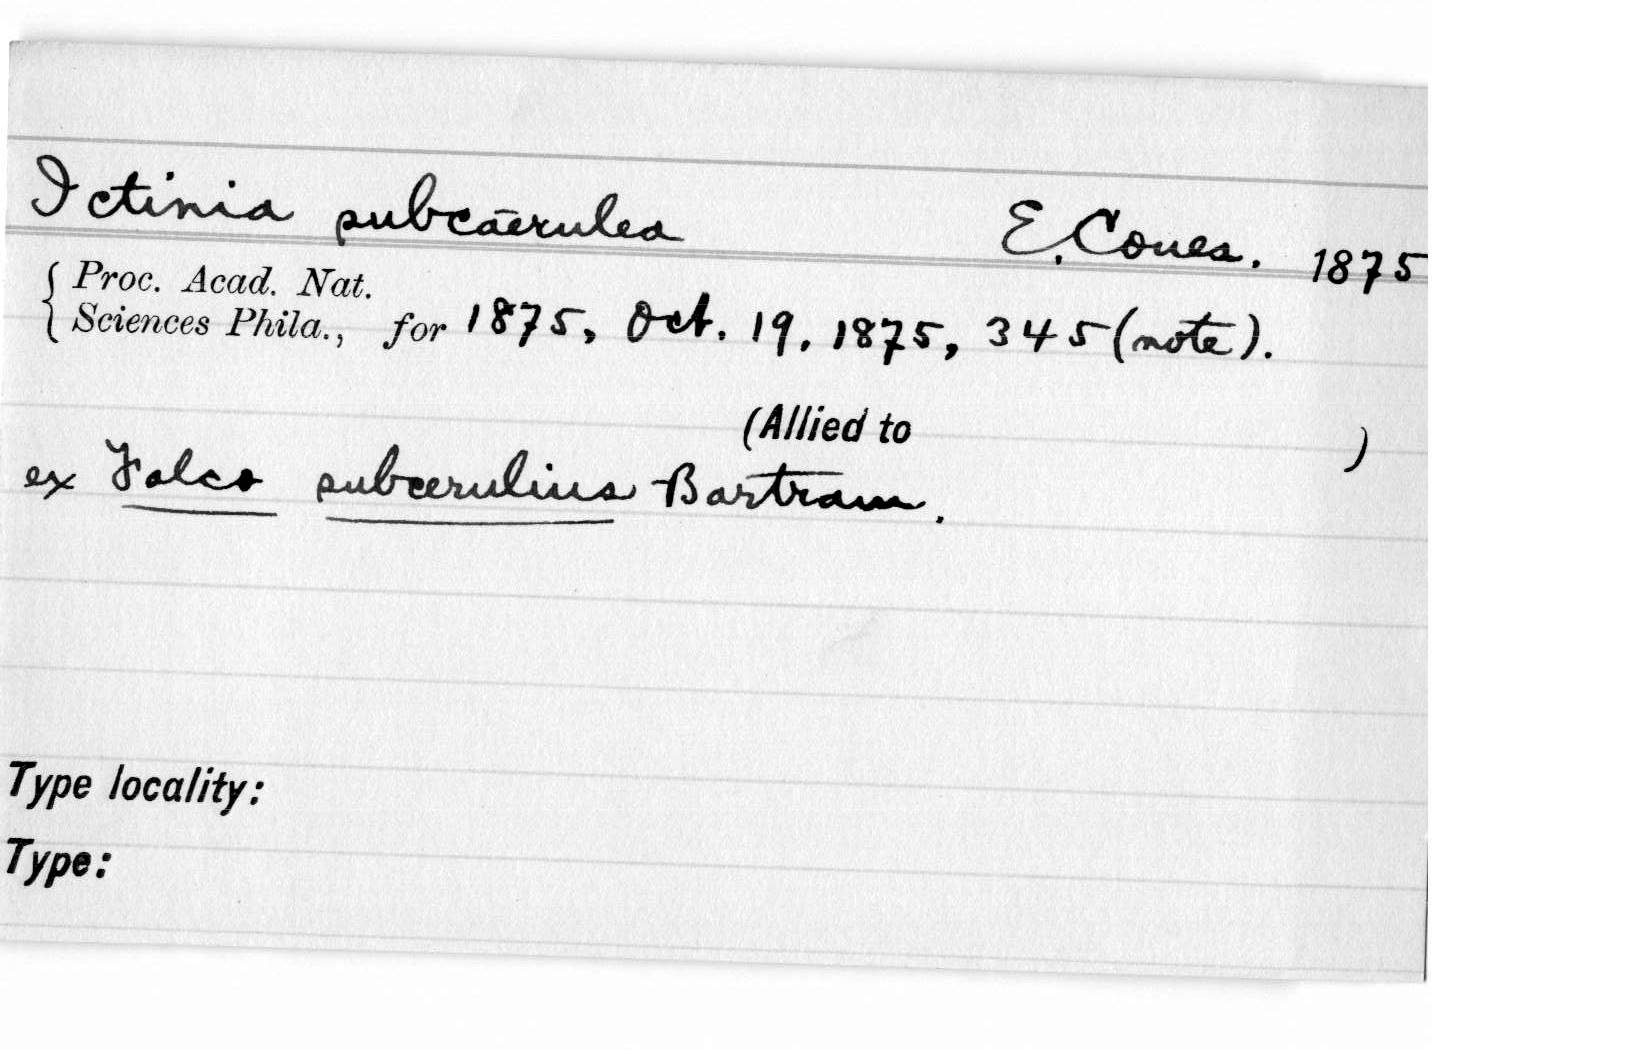 Ictinia subcaerulea E. Coues. 1875
{ Proc. Acad. Nat.
Sciences Phila., for 1875, Oct. 19, 1875, 345 (note).
(Allied to )
ex Falco subcerulius Bartram.
Type locality:
Type: